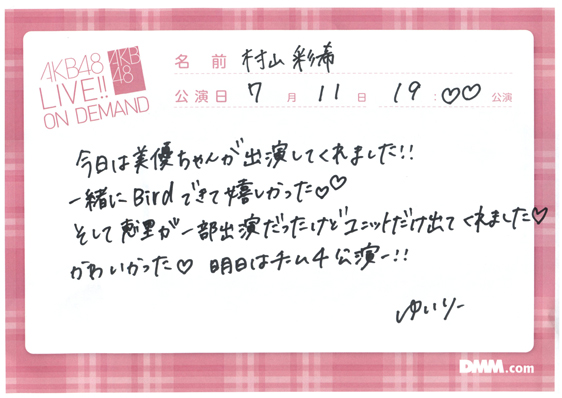 AKB48
LIVE!!
ON DEMAND
AKB
48
名前 村山彩希
公演日 7月11日 19:♡♡ 公演
今日は美優ちゃんが出演してくれました!!
一緒にBirdできて嬉しかった♡♡
そして恵里が一部出演だったけどユニットだけ出てくれました♡
かわいかった♡ 明日はチーム4公演ー!!
ゆいりー
DMM.com